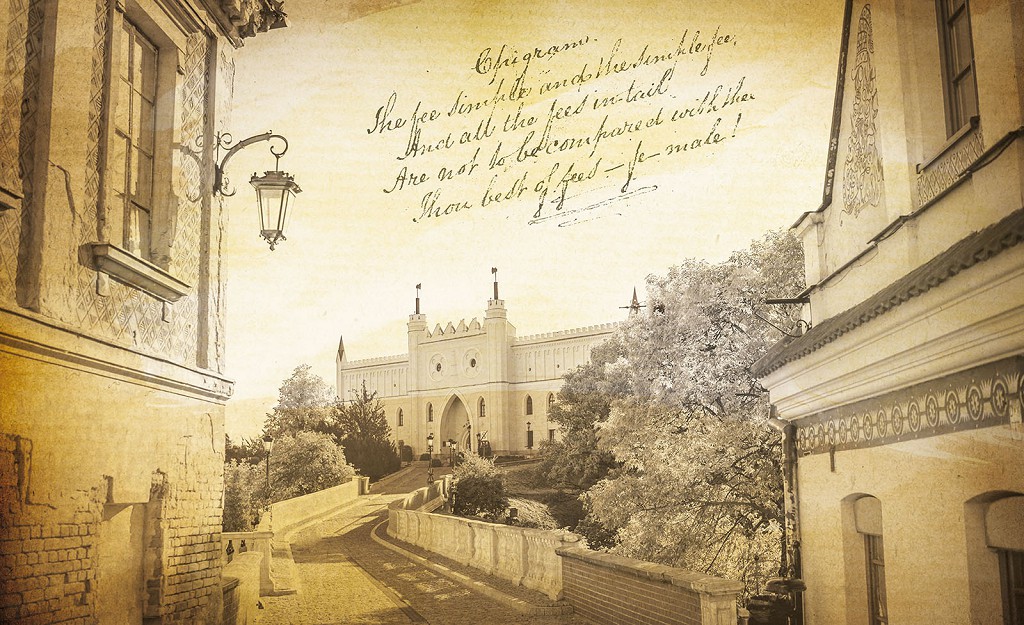 Epigram.
The fee simple and the simple fee,
And all the fees in tail
Are not to be compared with thee
Thou best of fees – fe – male!